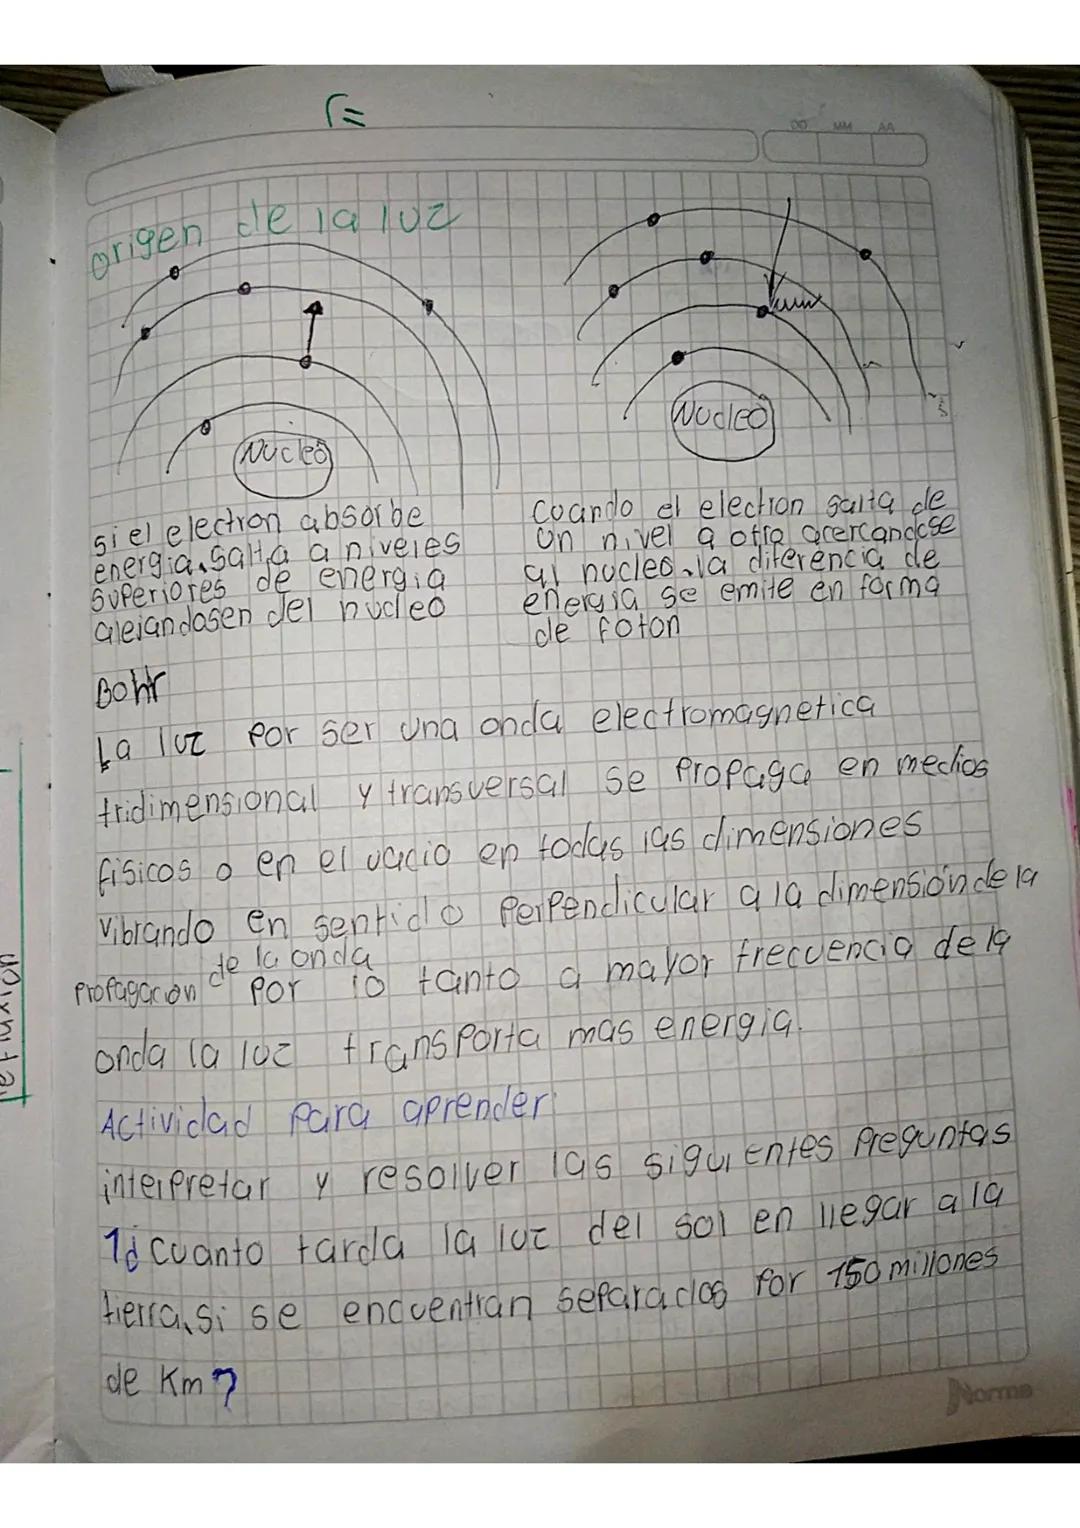 Γ=
DD MM AA
origen de la luz
Nucleo
Nucleo
si el electron absorbe
energia, salta a niveles
superiores de energia
alejandosen del nucleo
Cuando el electron salta de
un nivel a otro acercandose
al nucleo, la diferencia de
energia se emite en forma
de foton
Bohr
La luz por ser una onda electromagnetica
tridimensional y transversal se propaga en medios
fisicos o en el vacio en todas las dimensiones
vibrando en sentido perpendicular a la dimension de la
propagacion de la onda
por lo tanto a mayor frecuencia de la
onda la luz transporta mas energia.
Actividad para aprender
interpretar y resolver las siguientes preguntas
1¿cuanto tarda la luz del sol en llegar a la
tierra, si se encuentran separados por 150 millones
de Km?
Norma
reflexion